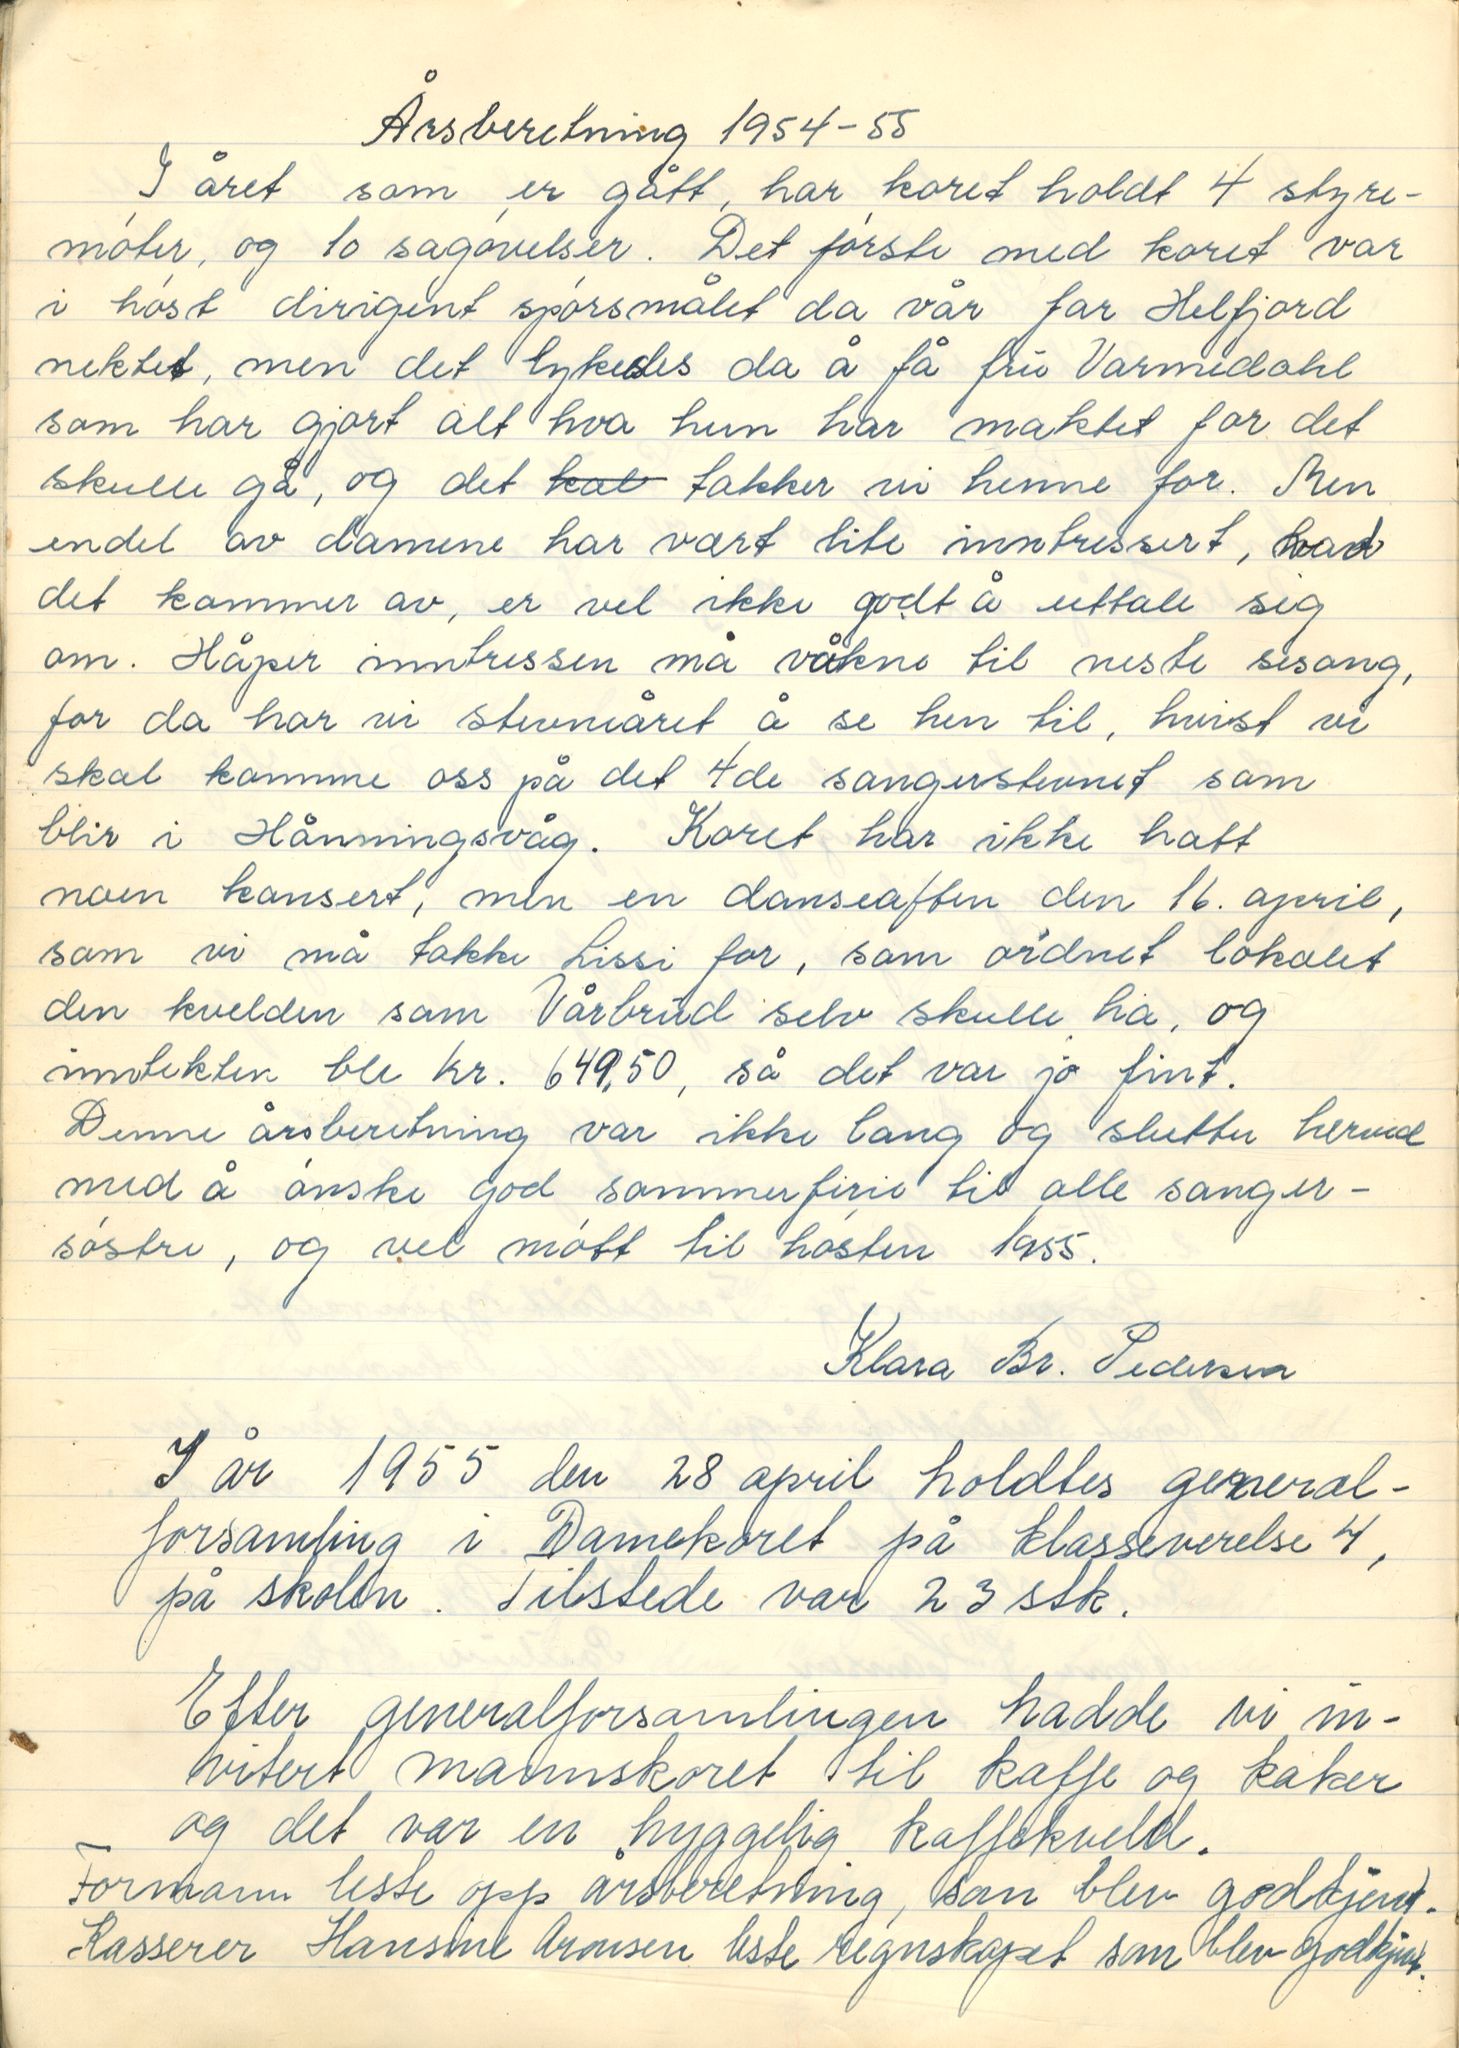 Årsberetning 1954-55
I året som er gått, har koret holdt 4 styre-
møter, og 10 sagøvelser. Det første med koret var
i høst dirigent spørsmålet da vår far Helfjord
nektet, men det lykedes da å få fru Varmedahl
som har gjort alt hva hun har maktet for det
skulle gå, og det kal takker vi henne for. Men
endel av damene har vært lite inntressert, hvad
det kommer av, er vel ikke godt å uttale sig
om. Håper inntressen må våkne til neste sesong,
for da har vi stevneåret å se hen til, hvist vi
skal komme oss på det 4de sangerstevnet som
blir i Hånningsvåg. Koret har ikke hatt
noen konsert, men en danseaften den 16. april,
som vi må takke Lissi for, som ordnet lokalet
den kvelden som Vårbrud selv skulle ha, og
inntekten ble kr. 649,50, så det var jo fint.
Denne årsberetning var ikke lang og slutter herved
med å ønske god sommerferie til alle sanger-
søstre, og vel møtt til høsten 1955.
Klara Br. Pedersen
I år 1955 den 28 april holdtes general-
forsamling i Damekoret på klasseverelse 4,
på skolen. Tilstede var 23 stk.
Efter generalforsamlingen hadde vi in-
vitert mannskoret til kaffe og kaker
og det var en hyggelig kaffekveld.
Formann leste opp årsberetning, som blev godkjent.
Kasserer Hansine Aronsen leste regnskapet som blev godkjent.